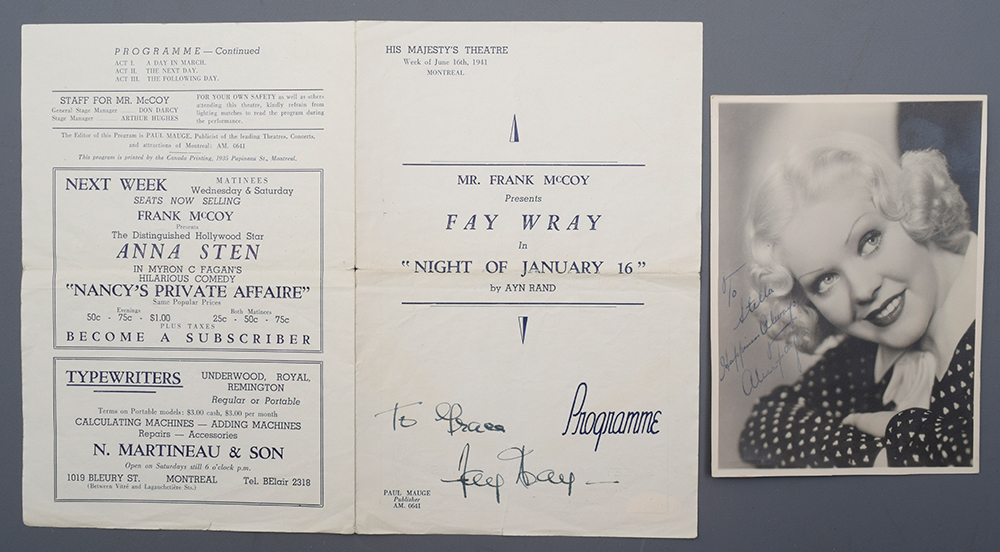 PROGRAMME — Continued
ACT I. A DAY IN MARCH.
ACT II. THE NEXT DAY.
ACT III. THE FOLLOWING DAY.
STAFF FOR MR. McCOY
General Stage Manager ........ DON DARCY
Stage Manager ........ ARTHUR HUGHES
FOR YOUR OWN SAFETY as well as others
attending this theatre, kindly refrain from
lighting matches to read the program during
the performance.
The Editor of this Program is PAUL MAUGE, Publicist of the leading Theatres, Concerts,
and attractions of Montreal: AM. 0641
This program is printed by the Canada Printing, 1935 Papineau St., Montreal.
NEXT WEEK
MATINEES
Wednesday & Saturday
SEATS NOW SELLING
FRANK McCOY
Presents
The Distinguished Hollywood Star
ANNA STEN
IN MYRON C FAGAN'S
HILARIOUS COMEDY
"NANCY'S PRIVATE AFFAIRE"
Same Popular Prices
Evenings Both Matinees
50c - 75c - $1.00 25c - 50c - 75c
PLUS TAXES
BECOME A SUBSCRIBER
TYPEWRITERS
UNDERWOOD, ROYAL,
REMINGTON
Regular or Portable
Terms on Portable models: $3.00 cash, $3.00 per month
CALCULATING MACHINES — ADDING MACHINES
Repairs — Accessories
N. MARTINEAU & SON
Open on Saturdays still 6 o'clock p.m.
1019 BLEURY ST. MONTREAL Tel. BElair 2318
(Between Vitré and Lagauchetière Sts.)
HIS MAJESTY'S THEATRE
Week of June 16th, 1941
MONTREAL
MR. FRANK McCOY
Presents
FAY WRAY
In
"NIGHT OF JANUARY 16"
by AYN RAND
Programme
To Grace
Fay Wray
PAUL MAUGE
Publisher
AM. 0641
To
Stella
Happiness Always